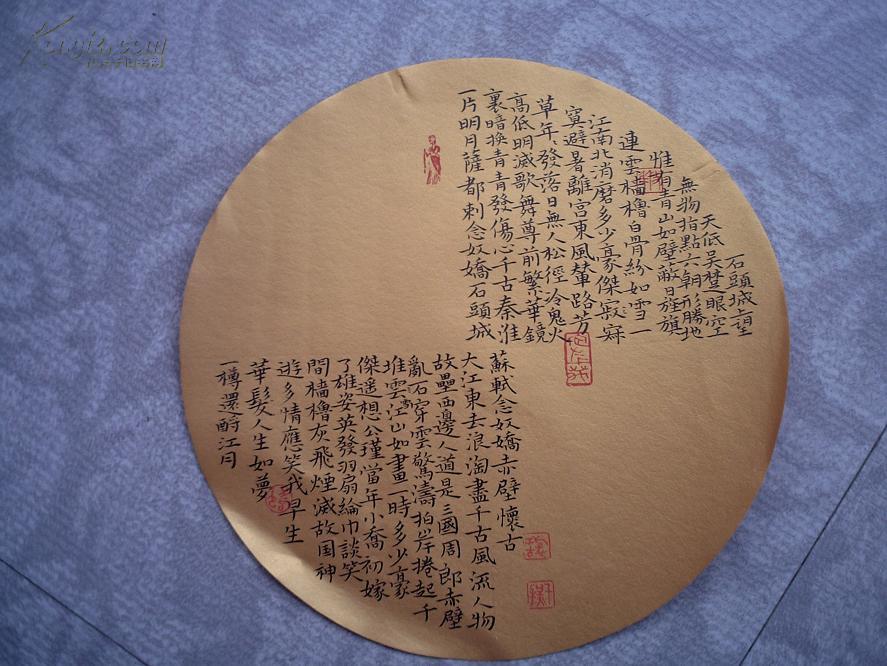 石頭城上望
天低吳楚眼空
無物指點六朝形勝地
惟有青山如壁蔽日旌旗
連雲檣櫓白骨紛如雪一
江南北消磨多少豪傑寂
寞避暑離宮東風輦路芳
草年、發落日無人松徑冷鬼火
高低明滅歌舞尊前繁華鏡
裏暗換青青發傷心千古秦淮
一片明月薩都剌念奴嬌石頭城
蘇軾念奴嬌赤壁懷古
大江東去浪淘盡千古風流人物
故壘西邊人道是三國周郎赤壁
亂石穿雲驚濤拍岸捲起千
堆雲江山如畫一時多少豪
傑遥想公瑾當年小喬初嫁
了雄姿英發羽扇綸巾談笑
間檣櫓灰飛煙滅故国神
遊多情應笑我早生
華髮人生如夢
一樽還酹江月